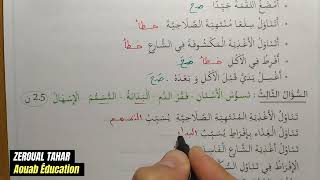 أمضغ اللقمة جيدا صح
أتناول سلعا منتهية الصلاحية خطأ
أتناول الأغذية المكشوفة في الشارع خطأ
أفرط في الأكل خطأ صح
أغسل يدي قبل الأكل و بعده صح
السؤال الثالث: تسوس الأسنان - فقر الدم - البدانة - التسمم - الإسهال 2.5 ن
تناول الأغذية المنتهية الصلاحية يسبب التسمم
تناول الغذاء بإفراط يسبب البدا
تناول الأغذية
الإفراط في
ZEROUAL TAHAR
Aouab Éducation